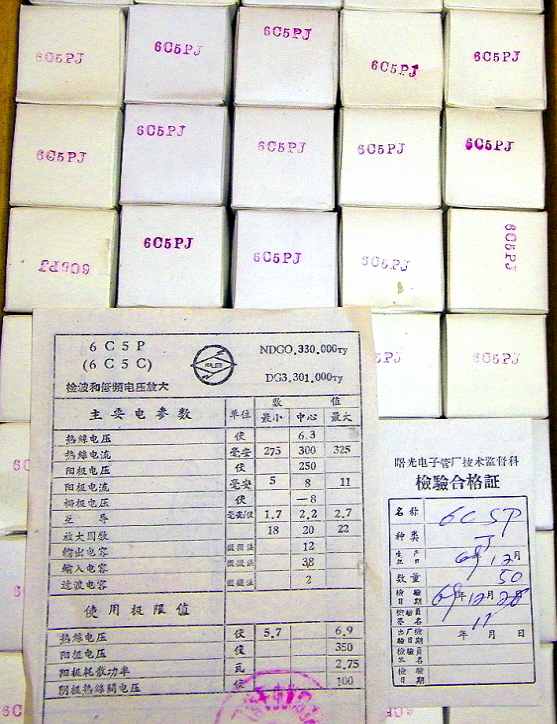 6C5PJ 6C5PJ 6C5PJ 6C5PJ 6C5PJ
6C5PJ 6C5PJ 6C5PJ 6C5PJ 6C5PJ
6C5PJ 6C5PJ 6C5PJ 6C5PJ 6C5PJ
5PJ 6C5PJ
6C5P
(6C5C)
NDGO.330.000ТУ
DG3.301.000ТУ
检波和低频电压放大
主要电参数 单位 数值
最小 中心 最大
热絲电压 伏 6.3
热絲电流 毫安 275 300 325
阳极电压 伏 250
阳极电流 毫安 5 8 11
栅极电压 伏 —8
互导 毫安/伏 1.7 2.2 2.7
放大因数 18 20 22
输出电容 微微法 12
输入电容 微微法 3.8
过渡电容 微微法 2
使用极限值
热絲电压 伏 5.7 6.9
阳极电压 伏 350
阳极耗散功率 瓦 2.75
阴极热絲間电压 伏 100
曙光电子管厂技术监督科
檢驗合格証
名称 6C5P
种类 J
生产日期 69 12月
数量 50
檢驗日期 69年12月28
檢驗員签名 11
出厂檢驗日期 年 月 日
檢驗員签名
檢驗日期